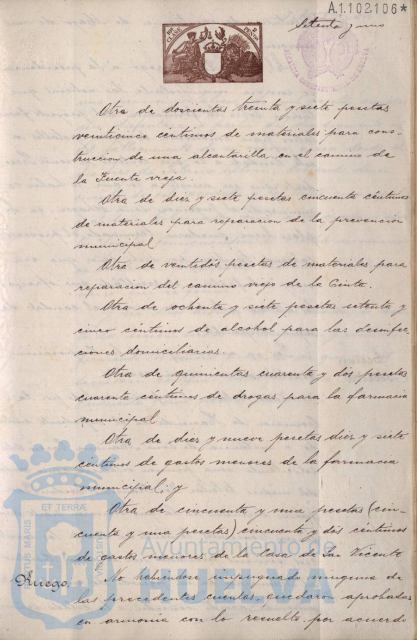 A.1.102.106*
Setenta y uno
Otra de doscientas treinta y siete pesetas
veinticinco céntimos de materiales para cons-
truccion de una alcantarilla en el camino de
la Fuente vieja.
Otra de diez y siete pesetas cincuenta céntimos
de materiales para reparacion de la prevencion
municipal
Otra de veintidós pesetas de materiales para
reparacion del camino viejo de la Cinta.
Otra de ochenta y siete pesetas setenta y
cinco céntimos de alcohol para las desinfec-
ciones domiciliarias.
Otra de quinientas cuarenta y dos pesetas
cuarenta céntimos de drogas para la farmacia
municipal
Otra de diez y nueve pesetas diez y siete
céntimos de gastos menores de la farmacia
municipal; y
Otra de cincuenta y una pesetas (cin-
cuenta y una pesetas) cincuenta y dos céntimos
de gastos menores de la Casa de San Vicente
Ruego.
No habiéndose impugnado ninguna de
las precedentes cuentas, quedaron aprobadas
en armonia con lo resuelto por acuerdo
ET TERRÆ
Ayuntamiento de
HUELVA